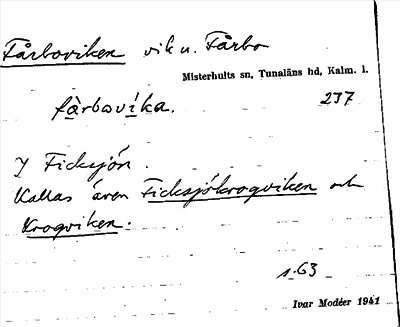 Fårboviken vik u. Fårbo
Misterhults sn, Tunaläns hd, Kalm. l.
fàrbovíka. 237
I Ficksjön.
Kallas även Ficksjökrogviken och
Krogviken.
s. 63
Ivar Modéer 1941